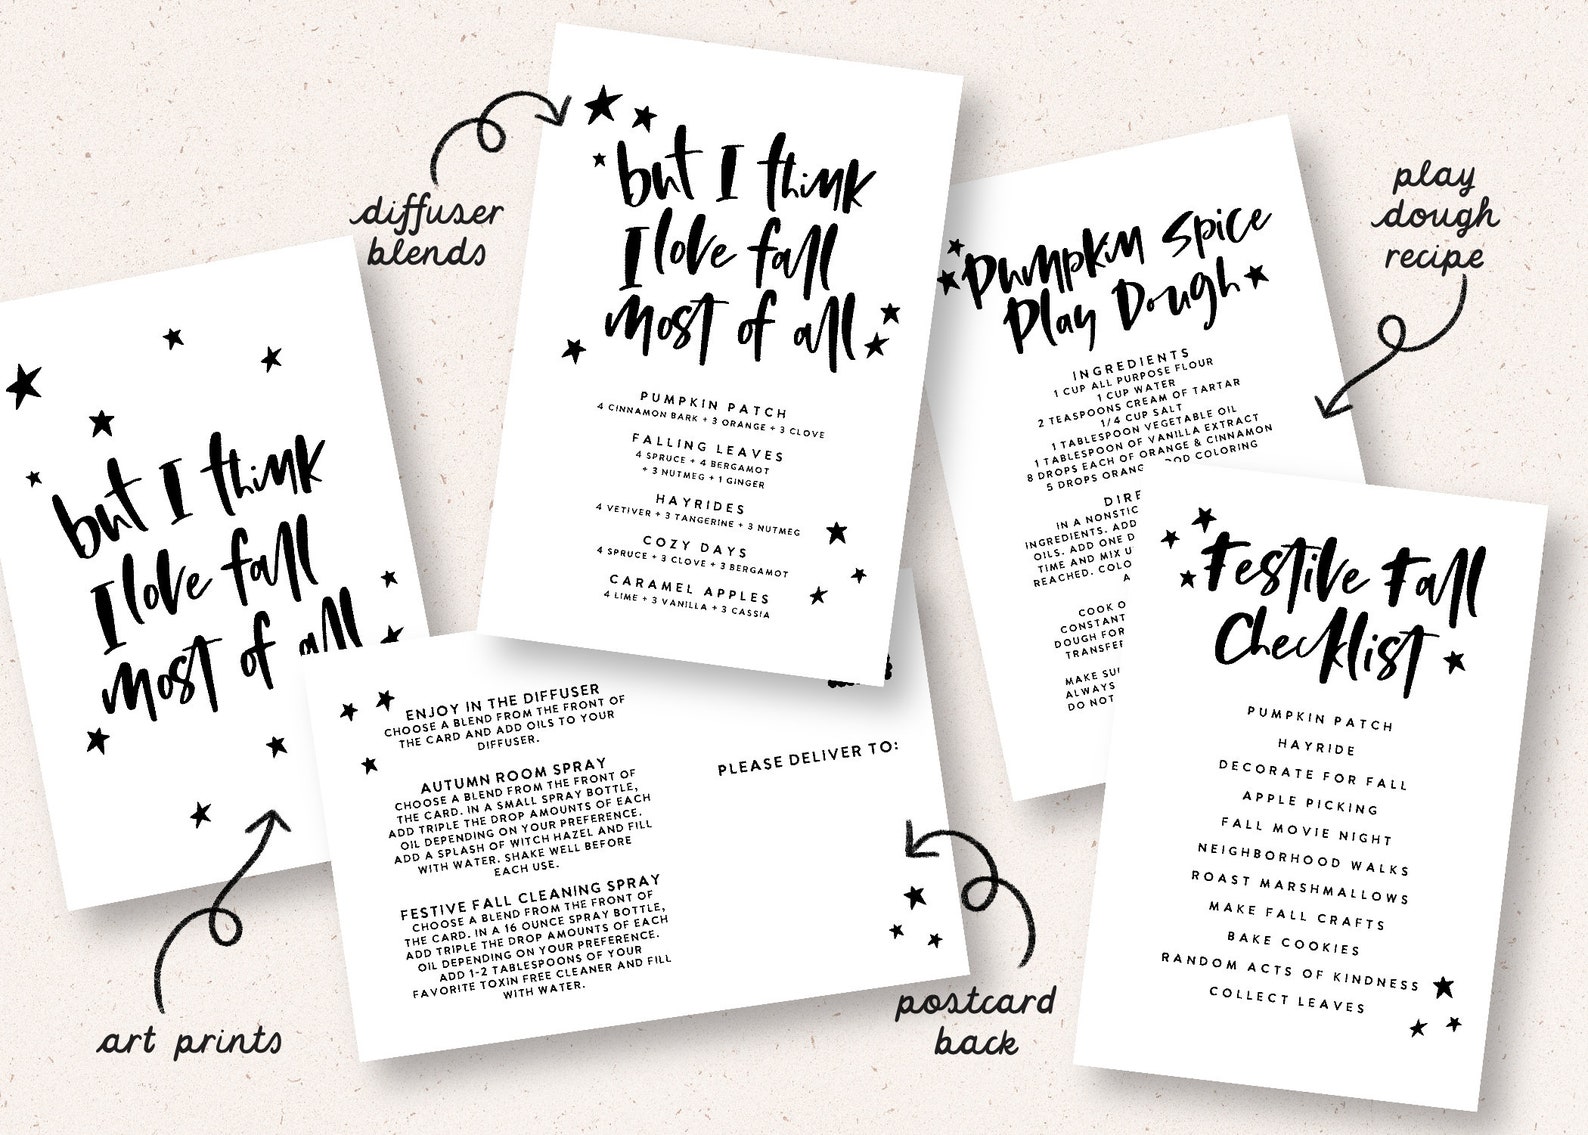 diffuser
blends
but I think
I love fall
most of all
PUMPKIN PATCH
4 CINNAMON BARK + 3 ORANGE + 3 CLOVE
FALLING LEAVES
4 SPRUCE + 4 BERGAMOT
+ 3 NUTMEG + 1 GINGER
HAYRIDES
4 VETIVER + 3 TANGERINE + 3 NUTMEG
COZY DAYS
4 SPRUCE + 3 CLOVE + 3 BERGAMOT
CARAMEL APPLES
4 LIME + 3 VANILLA + 3 CASSIA
play
dough
recipe
Pumpkin Spice
Play Dough
INGREDIENTS
1 CUP ALL PURPOSE FLOUR
1 CUP WATER
2 TEASPOONS CREAM OF TARTAR
1/4 CUP SALT
1 TABLESPOON VEGETABLE OIL
1 TABLESPOON OF VANILLA EXTRACT
8 DROPS EACH OF ORANGE & CINNAMON
5 DROPS COLORING
IN A
INGREDIENTS. ADD
OILS. ADD ONE
TIME AND MIX
REACHED.
COOK
DOUGH FOR
MAKE
ALWAYS
DO NOT
but I think
I love fall
most of all
art prints
ENJOY IN THE DIFFUSER
CHOOSE A BLEND FROM THE FRONT OF
THE CARD AND ADD OILS TO YOUR
DIFFUSER.
AUTUMN ROOM SPRAY
CHOOSE A BLEND FROM THE FRONT OF
THE CARD. IN A SMALL SPRAY BOTTLE,
ADD TRIPLE THE DROP AMOUNTS OF EACH
OIL DEPENDING ON YOUR PREFERENCE.
ADD A SPLASH OF WITCH HAZEL AND FILL
WITH WATER. SHAKE WELL BEFORE
EACH USE.
FESTIVE FALL CLEANING SPRAY
CHOOSE A BLEND FROM THE FRONT OF
THE CARD. IN A 16 OUNCE SPRAY BOTTLE,
ADD TRIPLE THE DROP AMOUNTS OF EACH
OIL DEPENDING ON YOUR PREFERENCE.
ADD 1-2 TABLESPOONS OF YOUR
FAVORITE TOXIN FREE CLEANER AND FILL
WITH WATER.
PLEASE DELIVER TO:
postcard
back
Festive Fall
Checklist
PUMPKIN PATCH
HAYRIDE
DECORATE FOR FALL
APPLE PICKING
FALL MOVIE NIGHT
NEIGHBORHOOD WALKS
ROAST MARSHMALLOWS
MAKE FALL CRAFTS
BAKE COOKIES
RANDOM ACTS OF KINDNESS
COLLECT LEAVES